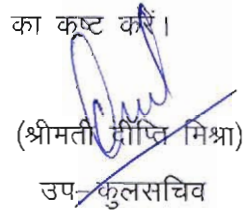 का कष्ट करें।
(श्रीमती दीप्ति मिश्रा)
उप-कुलसचिव